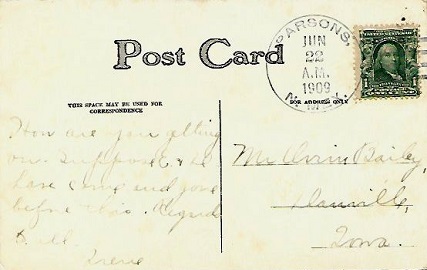 Post Card
PARSONS,
JUN
22
A.M.
1909
N. MEX.
THIS SPACE MAY BE USED FOR
CORRESPONDENCE
FOR ADDRESS ONLY
How are you getting
on. Suppose
have come and gone
before this.
to all
Irene
Mr Bailey,
Danville,
Iowa.